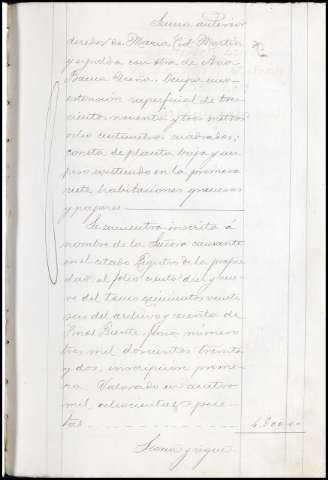 Suma anterior
derecha de Maria Cid Martin
y espalda con otra de Ana
Baena Ureña. Ocupa una
extensión superficial de tres
cientos noventa y tres metros
ocho centimetros cuadrados;
consta de planta baja y un
piso existiendo en la primera
siete habitaciones graneros
y pajares
Se encuentra inscrita á
nombre de la Señora causante
en el citado Registro de la propie
dad al folio ciento diez y nueve
del tomo quinientos veinti
seis del archivo y cuenta de
Pinos Puente, finca número
tres mil doscientos treinta
y dos, inscripcion prime
ra. Valorado en cuatro
mil ochocientas pese
tas
4.800 00
Suma y sigue